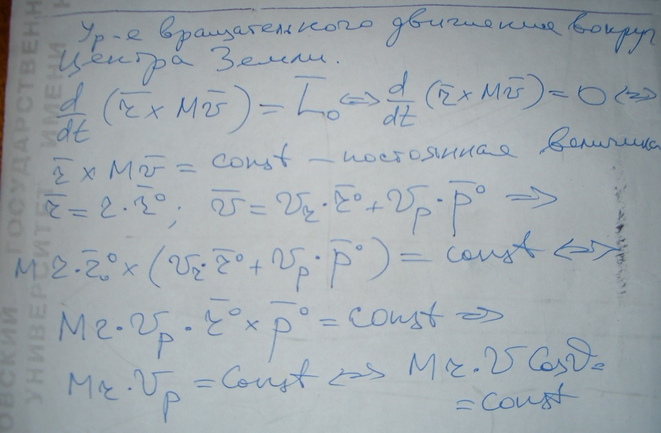 Ур-е вращательного движения вокруг
Центра Земли.
d/dt (r̄ × Mv̄) = L̄₀ ⇔ d/dt (r̄ × Mv̄) = 0 ⇔
r̄ × Mv̄ = const – постоянная величина
r̄ = r · r̄°; v̄ = Vr · r̄° + Vp · p̄° ⇒
M r · r̄° × (Vr · r̄° + Vp · p̄°) = const ⇔
Mr · Vp · r̄° × p̄° = const ⇒
Mr · Vp = Const ⇔ Mr · V Cosϑ =
= const
ГОСУДАРСТВЕНН
ОВСКИЙ
УНИВЕРСИТЕТ ИМЕНИ